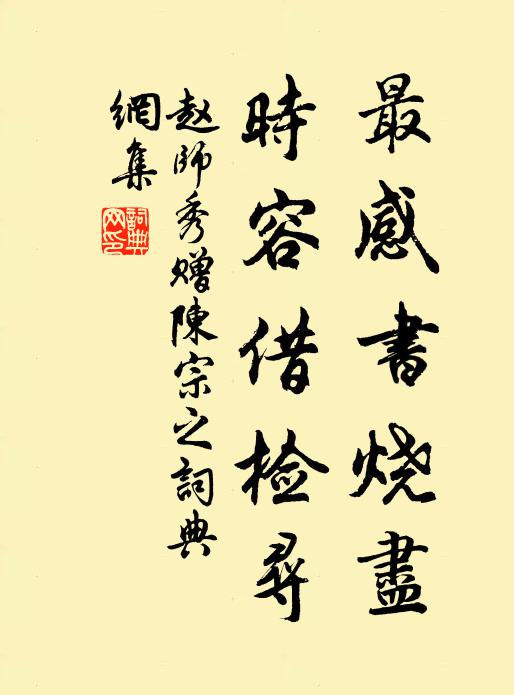 最感書烧盡
時容借检尋
赵師秀赠陳宗之詞典
網集
詞典
网印